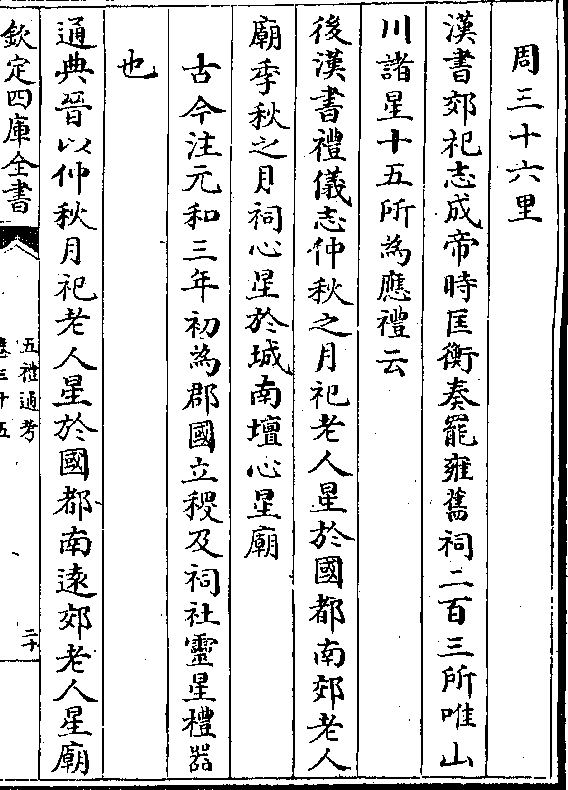 周三十六里
漢書郊祀志成帝時匡衡奏罷雍舊祠二百三所唯山
川諸星十五所為應禮云
後漢書禮儀志仲秋之月祀老人星於國都南郊老人
廟季秋之月祠心星於城南壇心星廟
古今注元和三年初為郡國立稷及祠社靈星禮器
也
通典晉以仲秋月祀老人星於國都南遠郊老人星廟
欽定四庫全書
五禮通考
卷三十五
二十